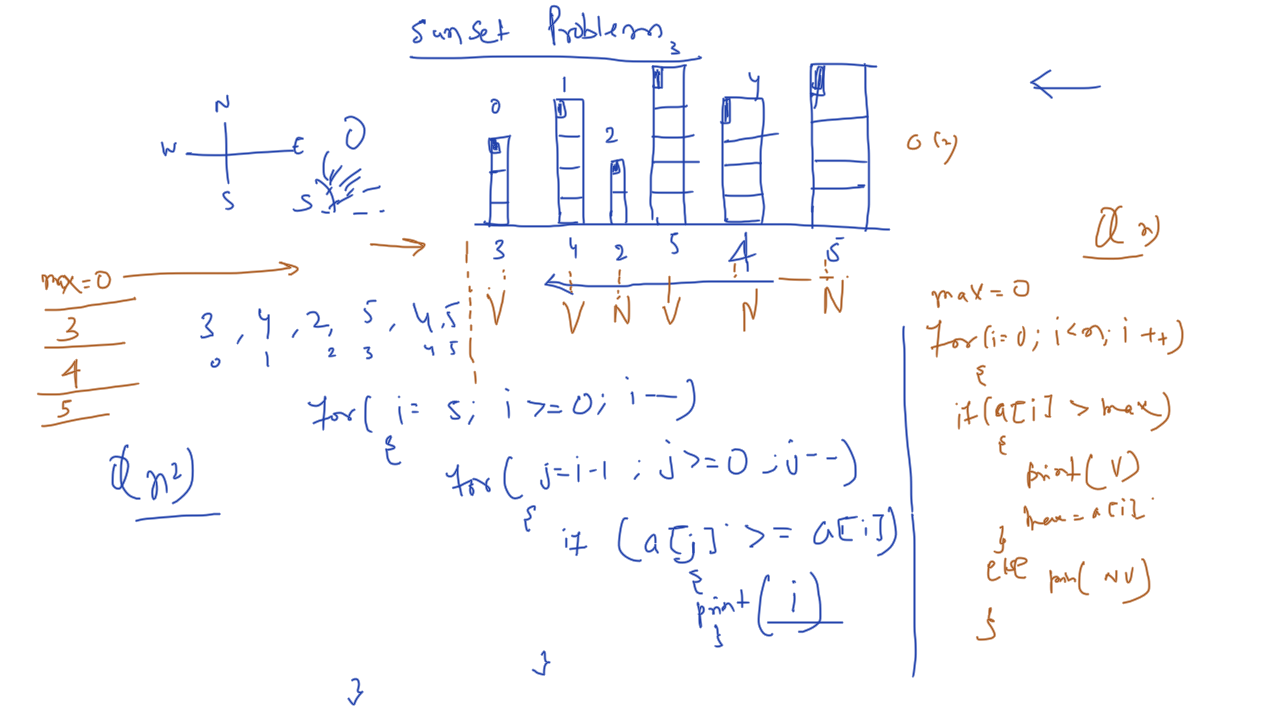 Sunset Problem
N
W E
S
0 1 2 3 4
3 4 2 5 4 5
V V N V N N
O(n)
max=0
3
4
5
3, 4, 2, 5, 4, 5
0 1 2 3 4 5
for( i= 5; i >=0; i--)
{
for( j=i-1 ; j>=0 ; j--)
{
if (a[j] >= a[i])
{
print(i)
}
}
}
O(n²)
O(n)
max=0
for(i=0; i<n; i++)
{
if(a[i] > max)
{
print( V)
max=a[i]
}
else
print( NV)
}